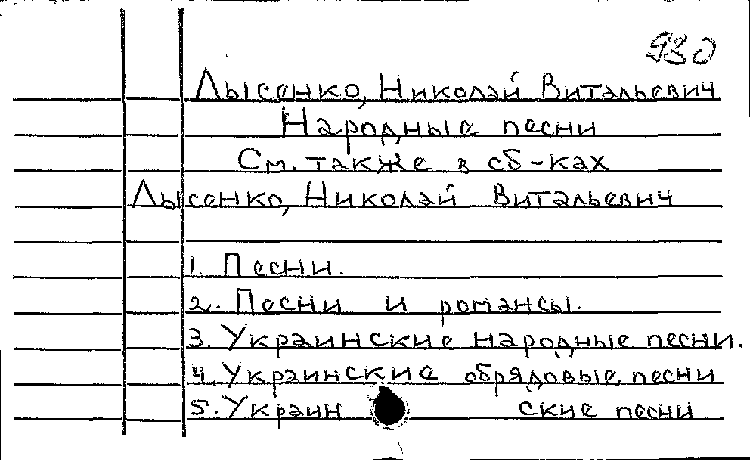 930
Лысенко, Николай Витальевич
Народные песни
См. также в сб-ках
Лысенко, Николай Витальевич
1. Песни.
2. Песни и романсы.
3. Украинские народные песни.
4. Украинские обрядовые песни
5. Украин ские песни